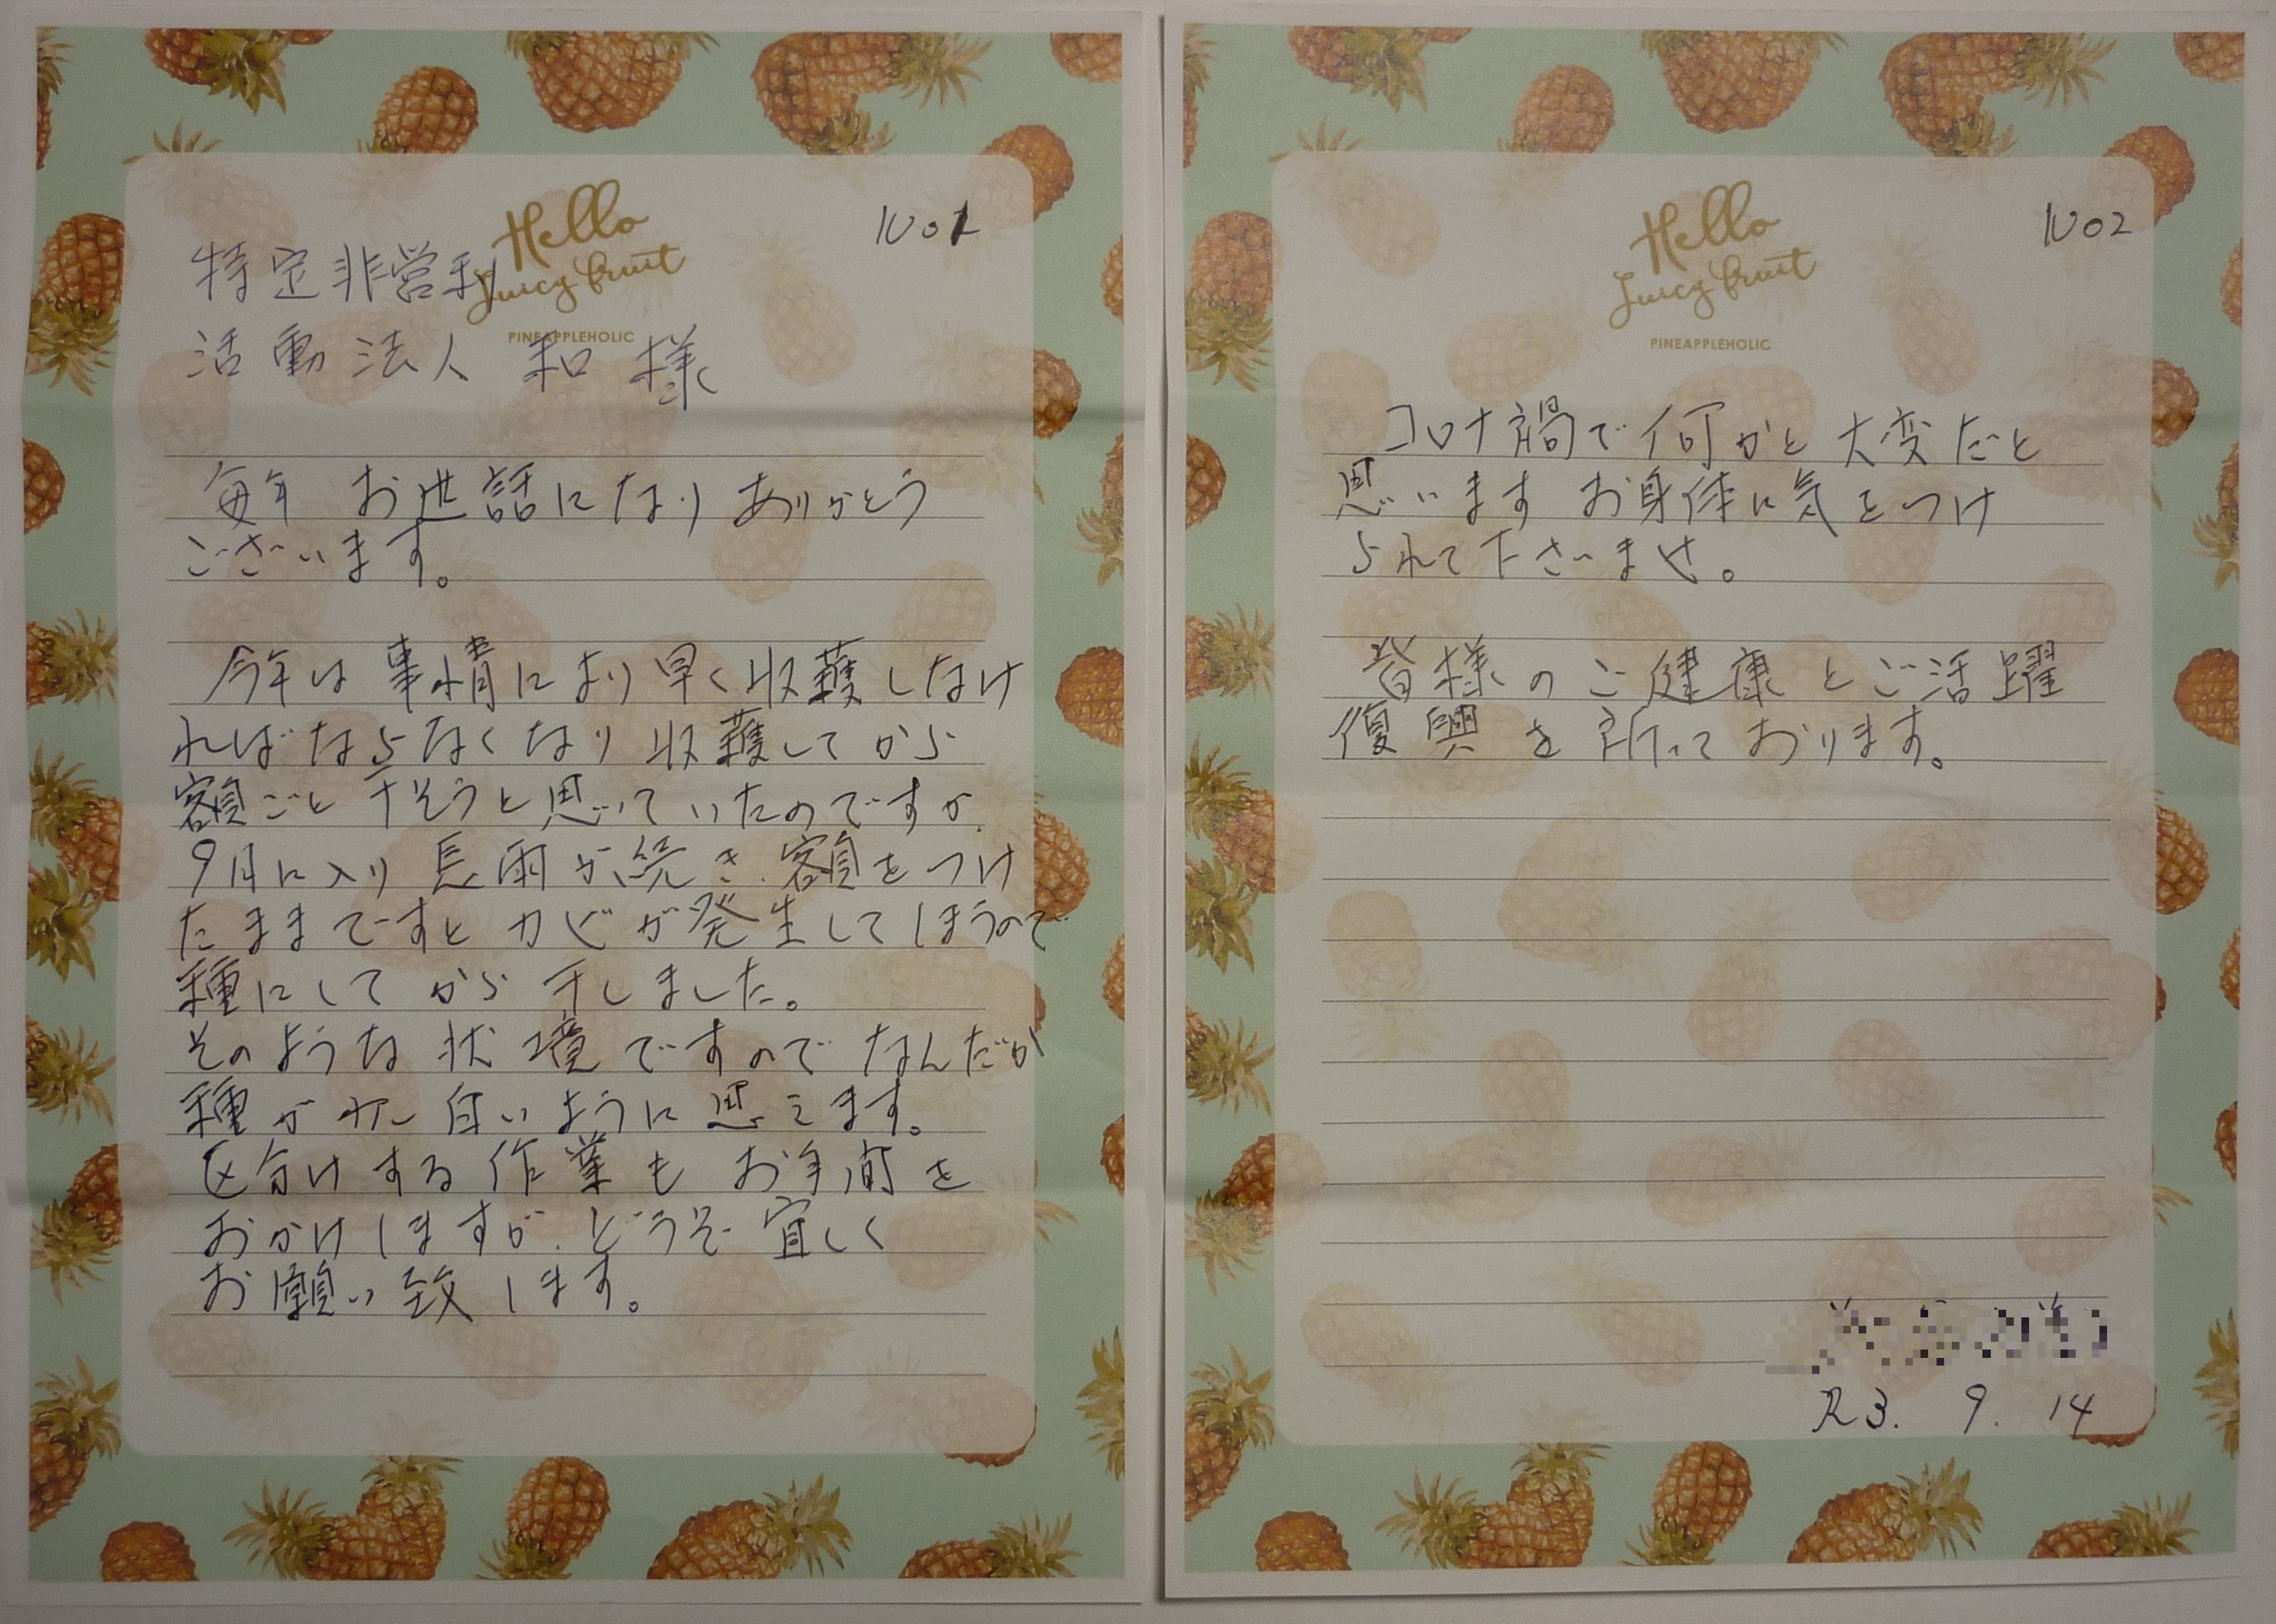 Hello
Juicy fruit
PINEAPPLEHOLIC
No1
特定非営利
活動法人 和 様
毎年 お世話になり ありがとう
ございます。
今年は 事情により早く収穫しなけ
ればならなくなり 収穫してから
額ごと干そうと思っていたのですが、
9月に入り 長雨が続き、額をつけ
たままですと カビが発生してしまうので
種にしてから 干しました。
そのような 状境ですので なんだか
種が 白いように思えます。
区分けする 作業も お手間を
おかけしますが、どうぞ宜しく
お願い致します。
Hello
Juicy fruit
PINEAPPLEHOLIC
No2
コロナ禍で何かと大変だと
思います お身体に気をつけ
られて下さいませ。
皆様のご健康とご活躍
復興を祈っております。
R3. 9. 14